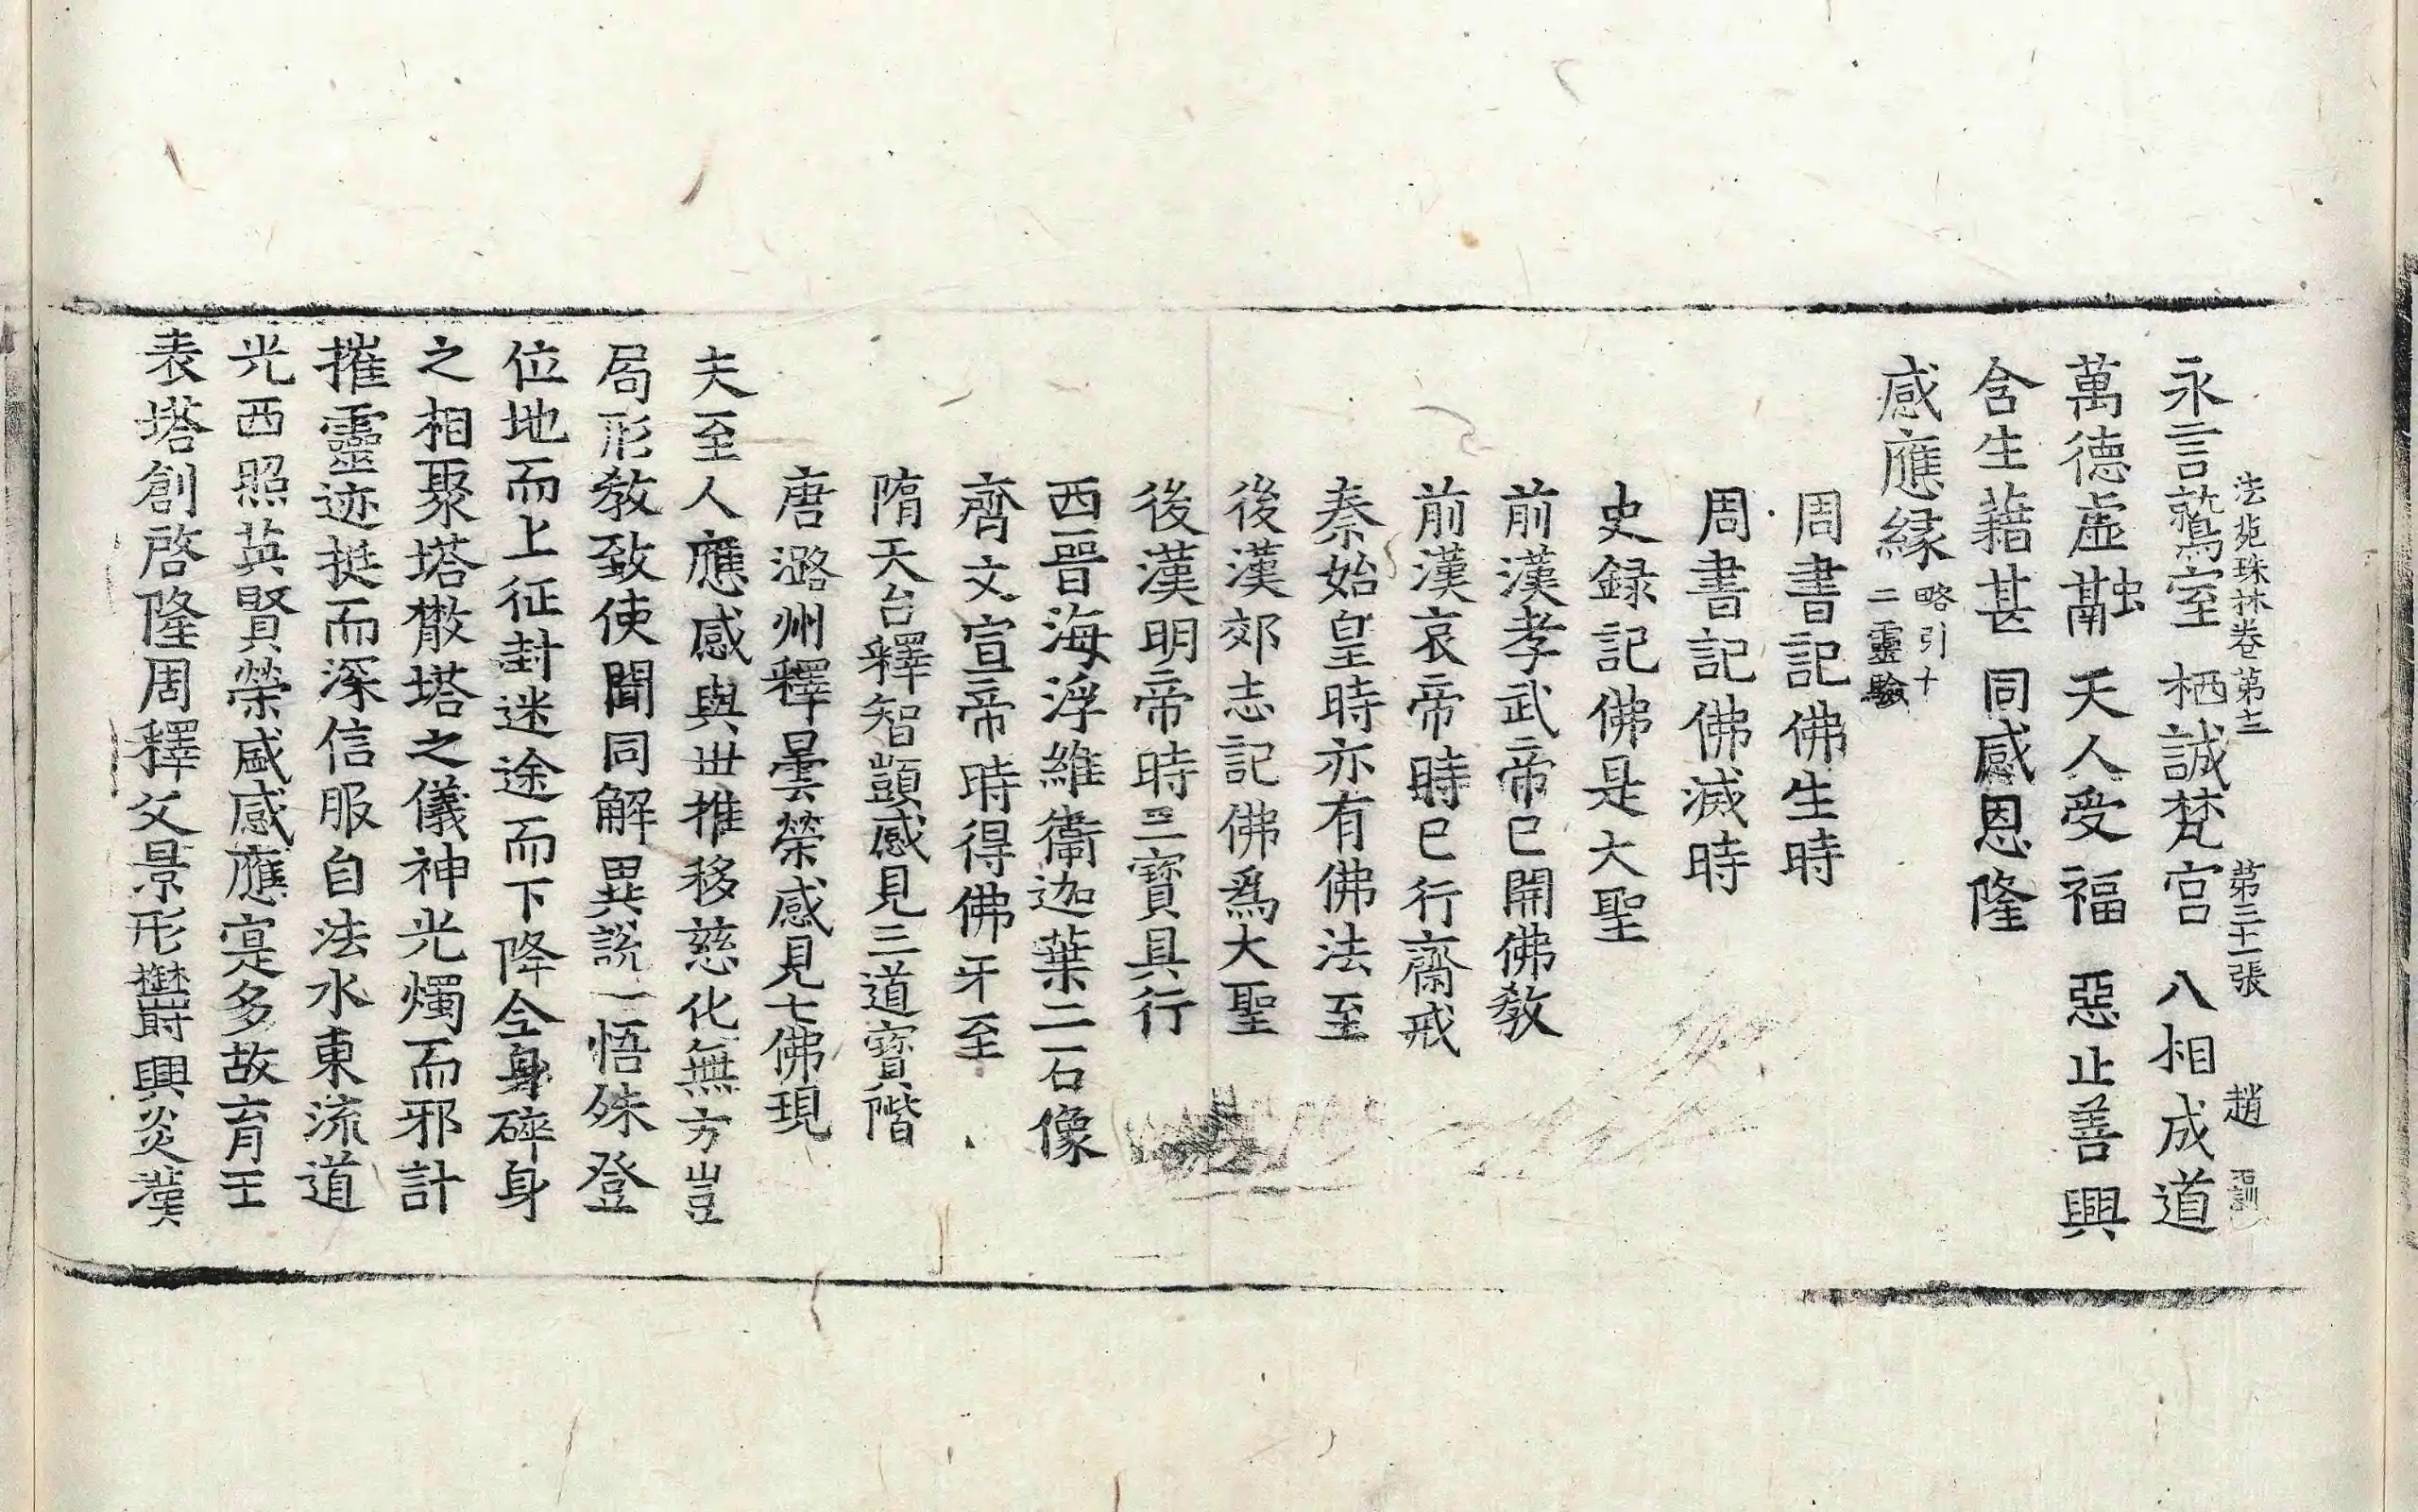 法苑珠林卷第十二 第三十一張 趙
永言鷲室 栖誠梵宫 八相成道
萬德虛融 天人受福 惡止善興
含生藉甚 同感恩隆
感應縁 略引十二靈驗
周書記佛生時
周書記佛滅時
史録記佛是大聖
前漢孝武帝已開佛教
前漢哀帝時已行齋戒
秦始皇時亦有佛法至
後漢郊志記佛爲大聖
後漢明帝時三寶具行
西晉海浮維衞迦葉二石像
齊文宣帝時得佛牙至
隋天台釋智顗感見三道寶階
唐潞州釋曇榮感見七佛現
夫至人應感與世推移慈化無方豈
局形教致使聞同解異説一悟殊登
位地而上征封迷途而下降全身碎身
之相聚塔散塔之儀神光燭而邪計
摧靈迹挺而深信服自法水東流道
光西照英賢榮感感應寔多故育王
表塔創啓隆周釋父景形欝興炎漢